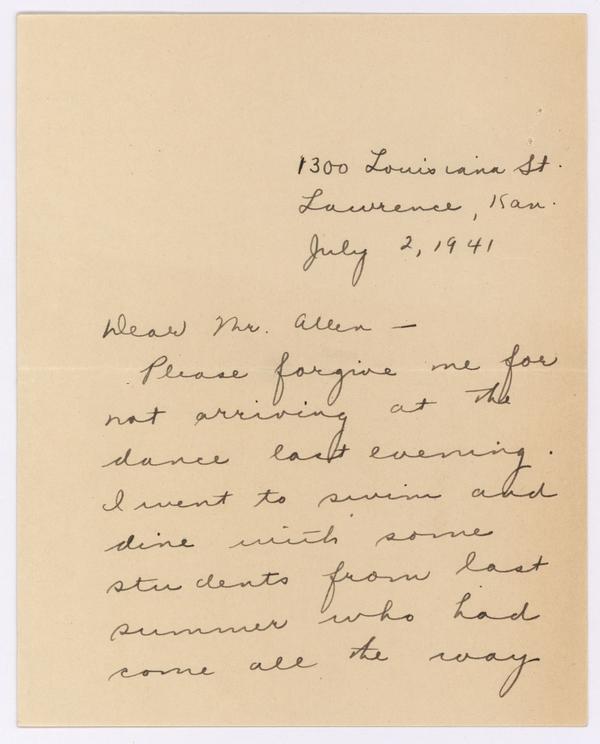 1300 Louisiana St.
Lawrence, Kan.
July 2, 1941
Dear Mr. Allen —
Please forgive me for
not arriving at the
dance last evening.
I went to swim and
dine with some
students from last
summer who had
come all the way